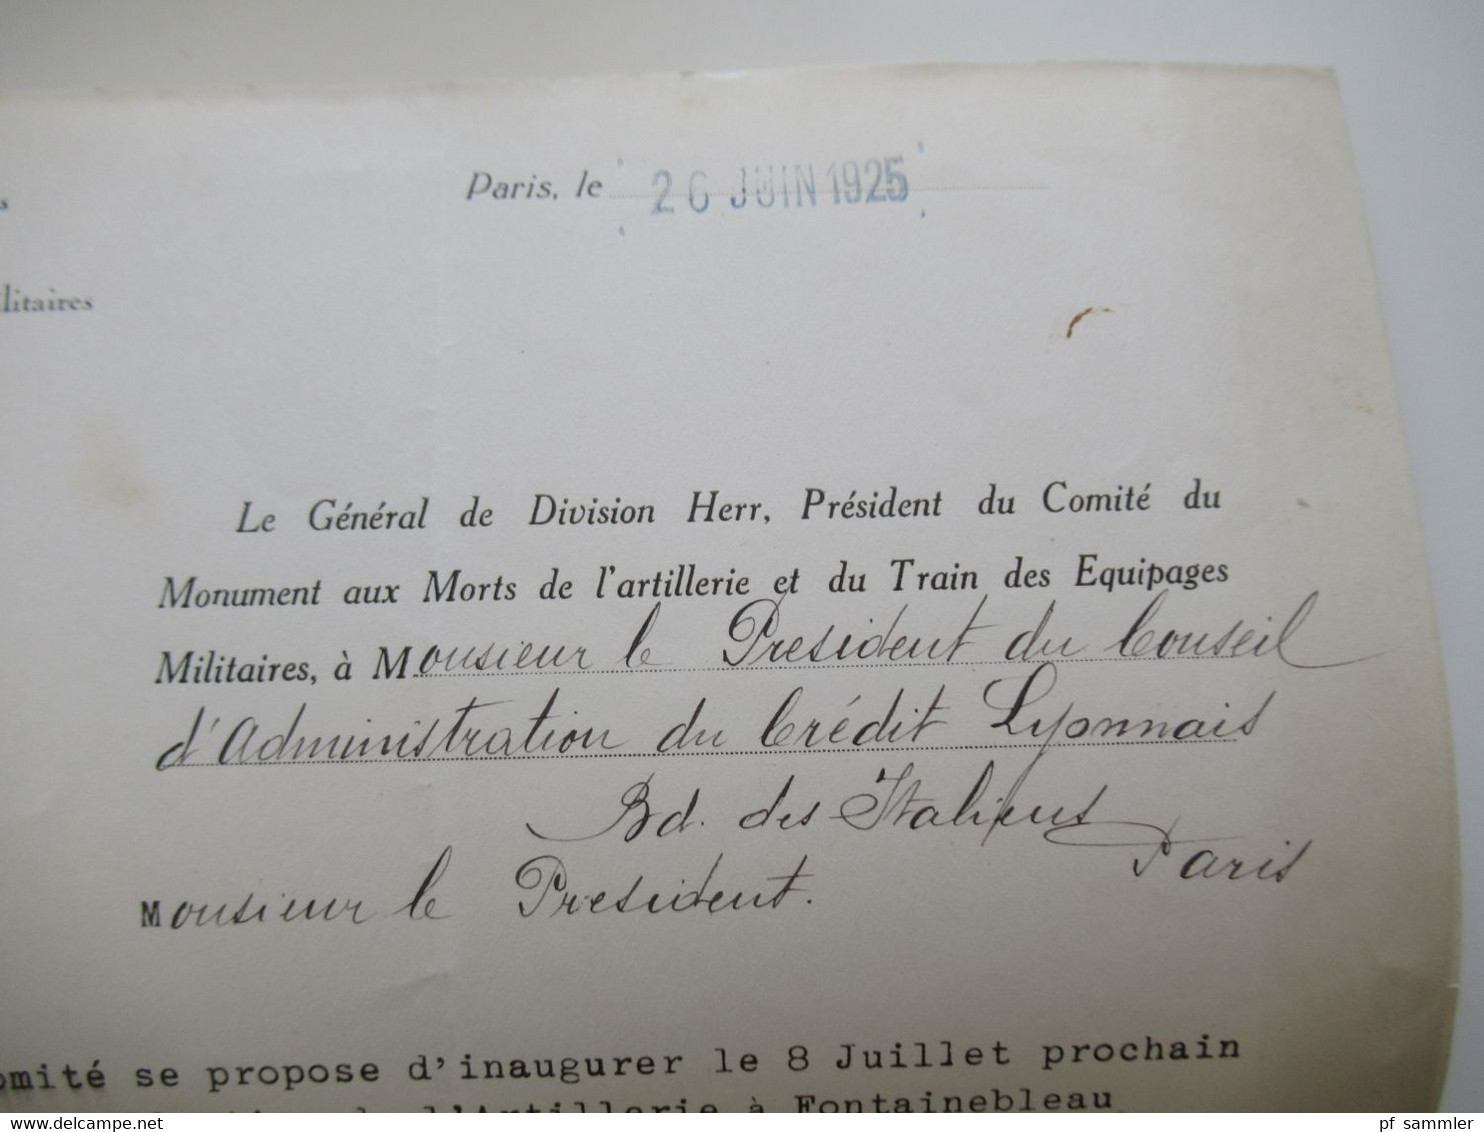 Paris, le 26 JUIN 1925
s
litaires
Le Général de Division Herr, Président du Comité du
Monument aux Morts de l'artillerie et du Train des Equipages
Militaires, à Monsieur le President du Conseil
d'Administration du Crédit Lyonnais
Bd. des Italiens
Paris
Monsieur le President.
omité se propose d'inaugurer le 8 Juillet prochain
l'Artillerie à Fontainebleau
pf sammler